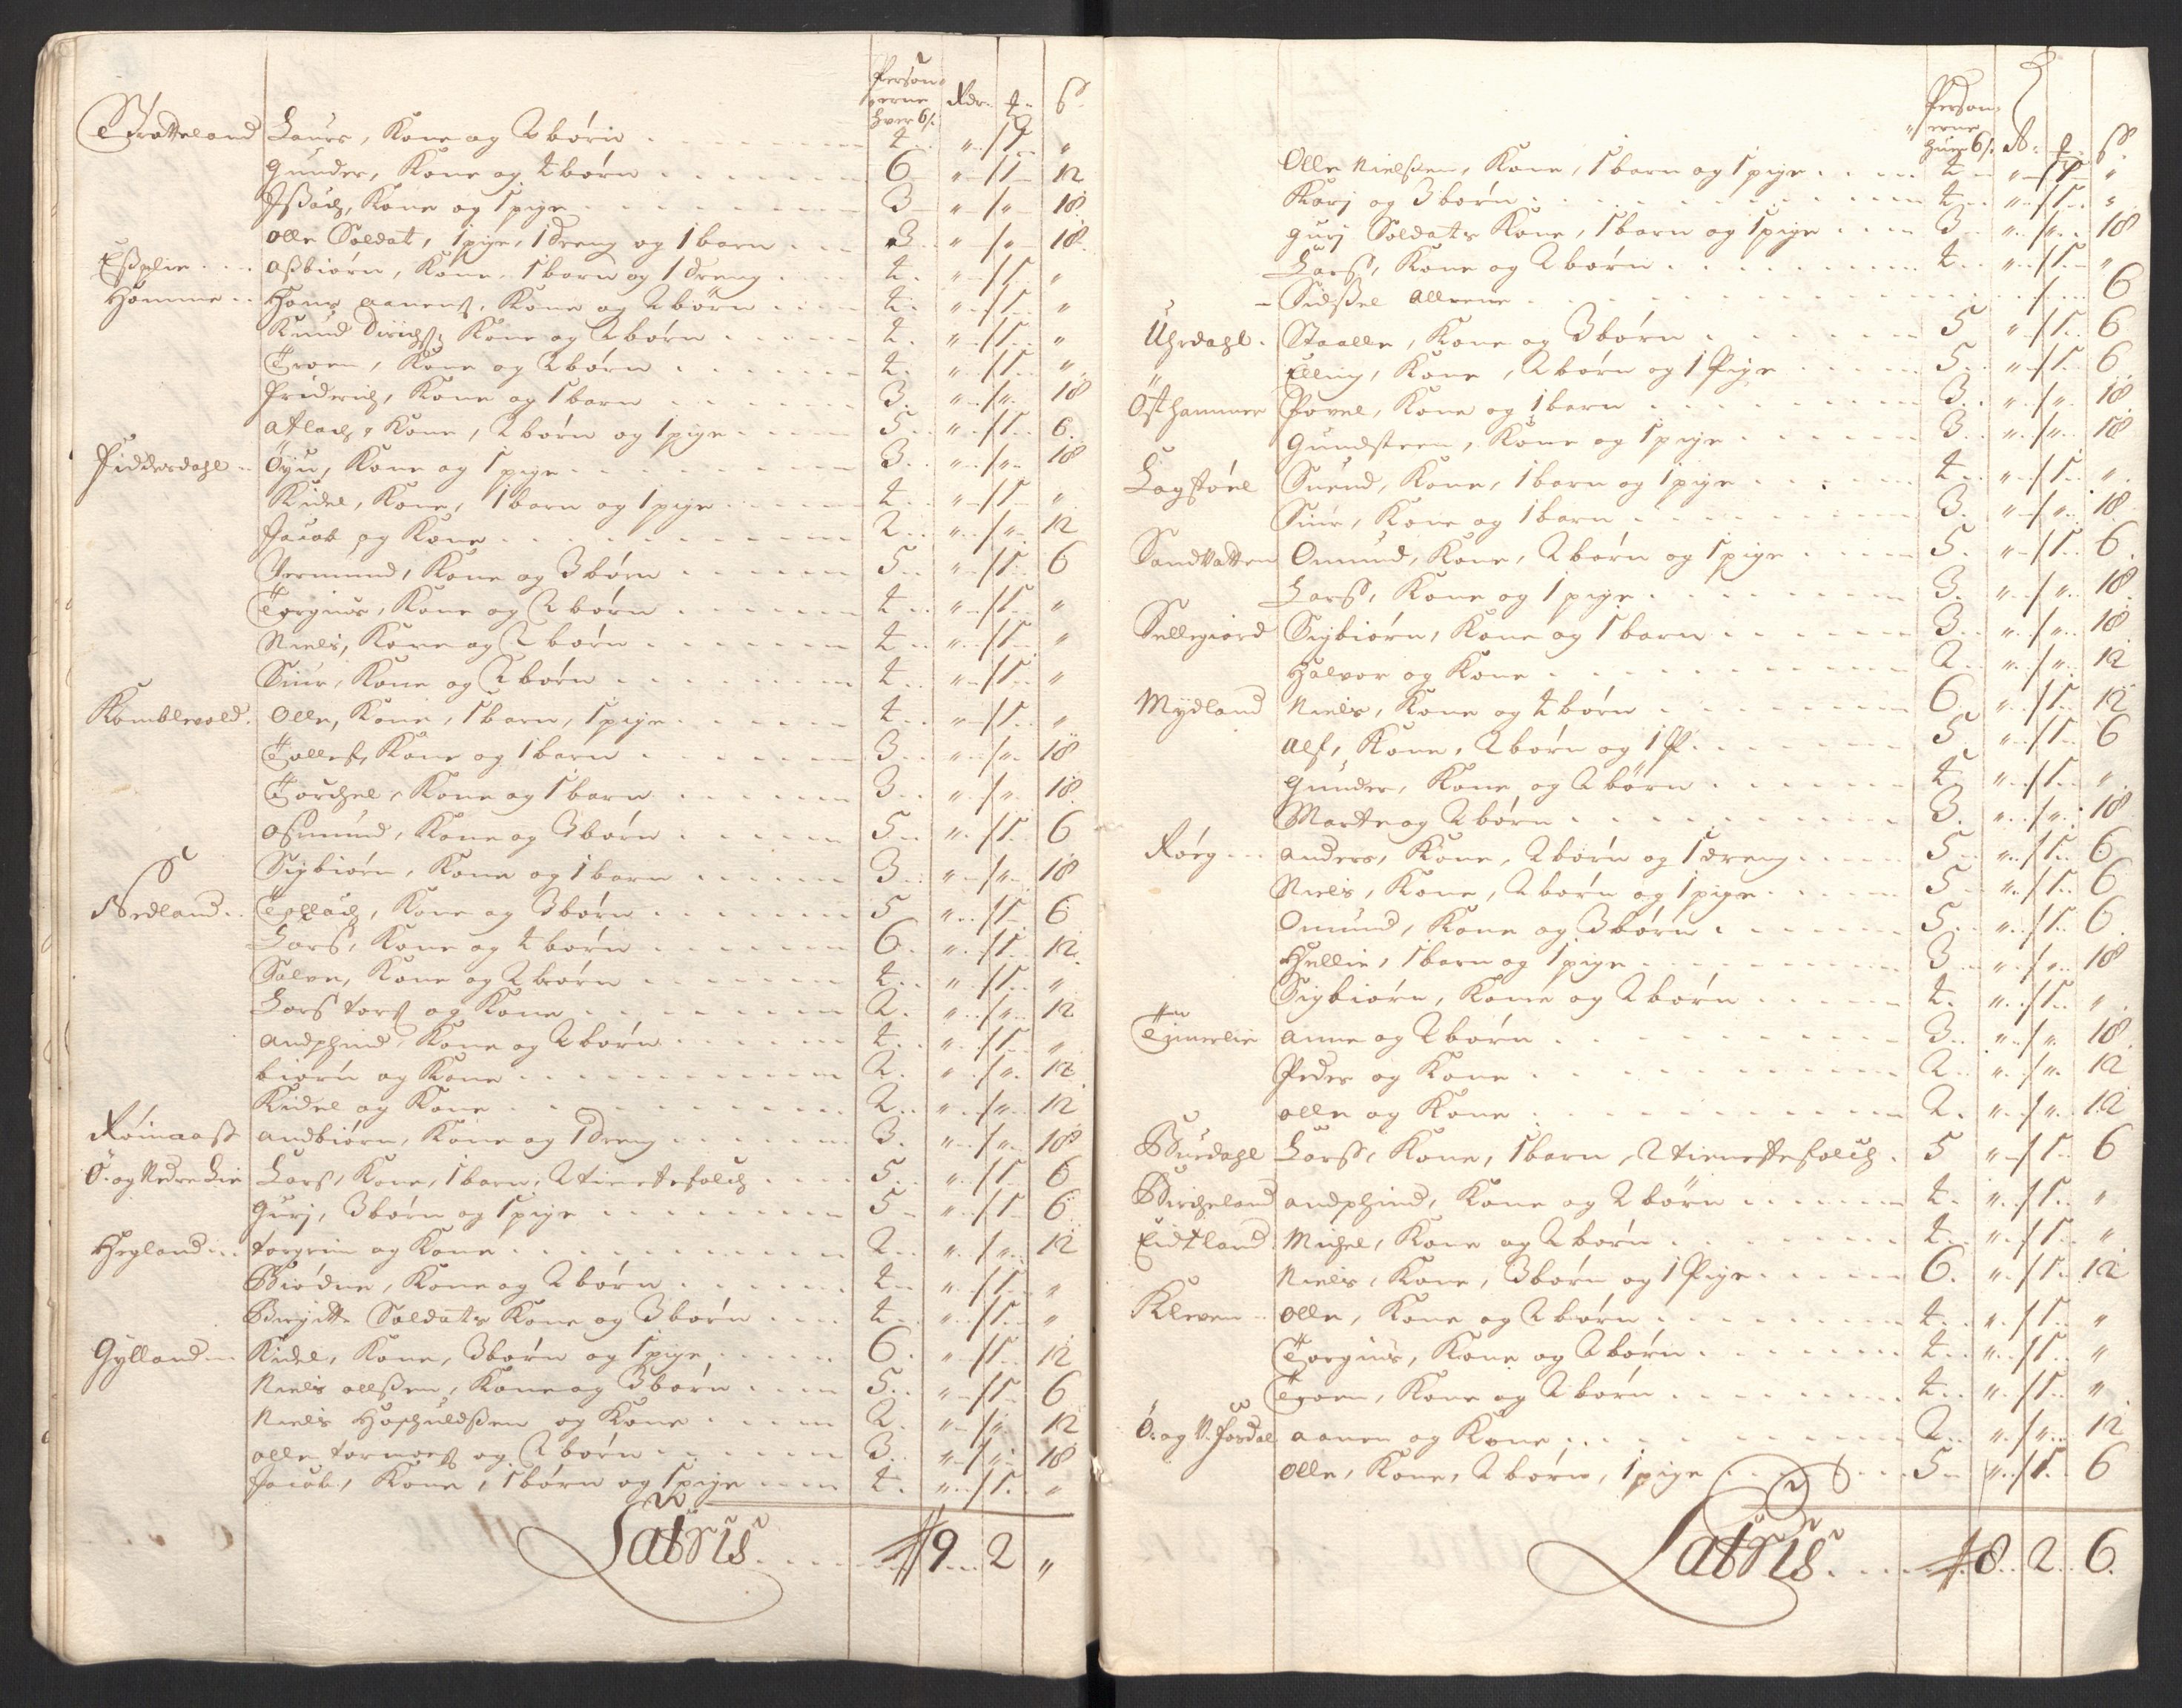 Person-
erne
hver 6 s. Rdr. s.
Tratteland Laurs, Kone og 2 børn 4 " 1 "
Gunder, Kone og 4 børn 6 " 1 12
Ißach, Kone og 1 pige 3 " " 18
Olle Soldat, 1 pige, 1 dreng og 1 barn 3 " " 18
Eßplie Aßbiørn, Kone, 1 barn og 1 dreng 4 " 1 "
Homme Hans Aanens, Kone og 2 børn 4 " 1 "
Knud Dirichs, Kone og 2 børn 4 " 1 "
Troen, Kone og 2 børn 4 " 1 "
Friderich, Kone og 1 barn 3 " " 18
Atlach, Kone, 2 børn og 1 pige 5 " 1 6
Fiddersdahl Øyu, Kone og 1 pige 3 " " 18
Kidel, Kone, 1 barn og 1 pige 4 " 1 "
Jacob og Kone 2 " " 12
Vermund, Kone og 3 børn 5 " 1 6
Torgius, Kone og 2 børn 4 " 1 "
Niels, Kone og 2 børn 4 " 1 "
Siur, Kone og 2 børn 4 " 1 "
Komblevold Olle, Kone, 1 barn, 1 pige 4 " 1 "
Tollef, Kone og 1 barn 3 " " 18
Torchel, Kone og 1 barn 3 " " 18
Osmund, Kone og 3 børn 5 " 1 6
Sigbiørn, Kone og 1 barn 3 " " 18
Nedland Tollach, Kone og 3 børn 5 " 1 6
Lars, Kone og 4 børn 6 " 1 12
Salve, Kone og 2 børn 4 " 1 "
Lars Tors og Kone 2 " " 12
Andphind, Kone og 2 børn 4 " 1 "
biørn og Kone 2 " " 12
Kidel og Kone 2 " " 12
Røinaaß Andbiørn, Kone og 1 dreng 3 " " 18
Ø. og Nedre Lie Lars, Kone, 1 barn, 2 tienestefolch 5 " 1 6
Gurj, 3 børn og 1 pige 5 " 1 6
Hegland Torgrim og Kone 2 " " 12
Biødne, Kone og 2 børn 4 " 1 "
Birgitte Soldats Kone og 3 børn 4 " 1 "
Gylland Kidel, Kone, 3 børn og 1 pige 6 " 1 12
Niels Olßen, Kone og 3 børn 5 " 1 6
Niels Hoschuldßen og Kone 2 " " 12
Olle Tornoes og 2 børn 3 " " 18
Jacob, Kone, 1 børn og 1 pige 4 " 1 "
Latris 9 2 "
Person-
erne
huer 6 s. R. s.
Olle Nielßen, Kone, 1 barn og 1 pige 4 " 1 "
Karj og 3 børn 4 " 1 "
Gurj Soldats Kone, 1 barn og 1 pige 3 " " 18
Lars, Kone og 2 børn 4 " 1 "
Sidßel Allene 6
Uhrdahl Staalle, Kone og 3 børn 5 " 1 6
Elling, Kone, 2 børn og 1 Pige 5 " 1 6
Østhammer Povel, Kone og 1 barn 3 " " 18
Gundsteen, Kone og 1 pige 3 " " 18
Lagstøel Suend, Kone, 1 barn og 1 pige 4 " 1 "
Siur, Kone og 1 barn 3 " " 18
Sandvatten Omund, Kone, 2 børn og 1 pige 5 " 1 6
Lars, Kone og 1 pige 3 " " 18
Sellegiord Sigbiørn, Kone og 1 barn 3 " " 18
Halvor og Kone 2 " " 12
Mydland Niels, Kone og 4 børn 6 " 1 12
Alf, Kone, 2 børn og 1 P. 5 " 1 6
Gunder, Kone og 2 børn 4 " 1 "
Marte og 2 børn 3 " " 18
Røeg Anders, Kone, 2 børn og 1 dreng 5 " 1 6
Niels, Kone, 2 børn og 1 pige 5 " 1 6
Omund, Kone og 3 børn 5 " 1 6
Hellie, 1 barn og 1 pige 3 " " 18
Sigbiørn, Kone og 2 børn 4 " 1 "
Timerlie Anne og 2 børn 3 " " 18
Peder og Kone 2 " " 12
Olle og Kone 2 " " 12
Buerdahl Lars, Kone, 1 barn, 2 tienestefolch 5 " 1 6
Bircheland Andphind, Kone og 2 børn 4 " 1 "
Eidtland Michel, Kone og 2 børn 4 " 1 "
Niels, Kone, 3 børn og 1 Pige 6 " 1 12
Kleven Olle, Kone og 2 børn 4 " 1 "
Torgius, Kone og 2 børn 4 " 1 "
Troen, Kone og 2 børn 4 " 1 "
Ø. og N. Josdal Aanen og Kone 2 " " 12
Olle, Kone, 2 børn, 1 pige 5 " 1 6
Latris 8 2 6